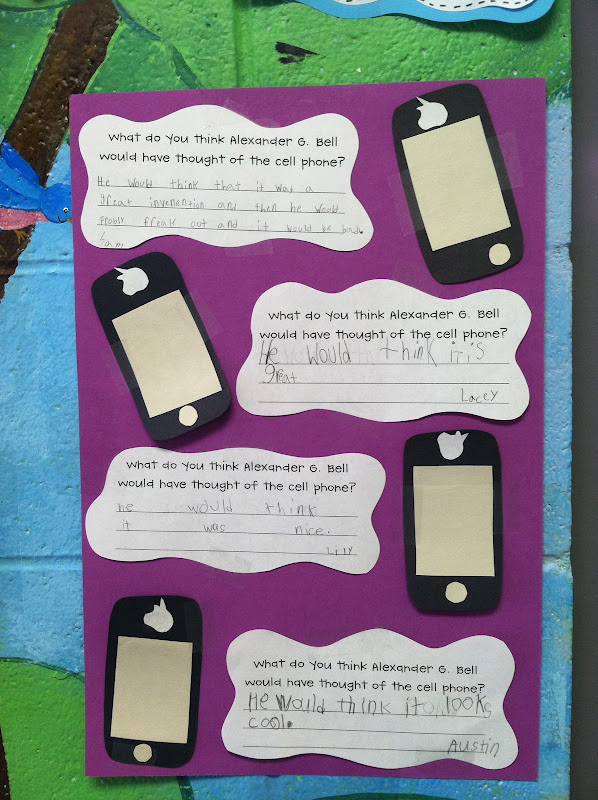 What do you think Alexander G. Bell
would have thought of the cell phone?
He would think that it was a
great invenention and then he would
probly freak out and it would be bad.
Sam
What do you think Alexander G. Bell
would have thought of the cell phone?
He would think it is
great
Lacey
What do you think Alexander G. Bell
would have thought of the cell phone?
he would think
it was nice.
Lily
What do you think Alexander G. Bell
would have thought of the cell phone?
He would think it looks
cool.
Austin